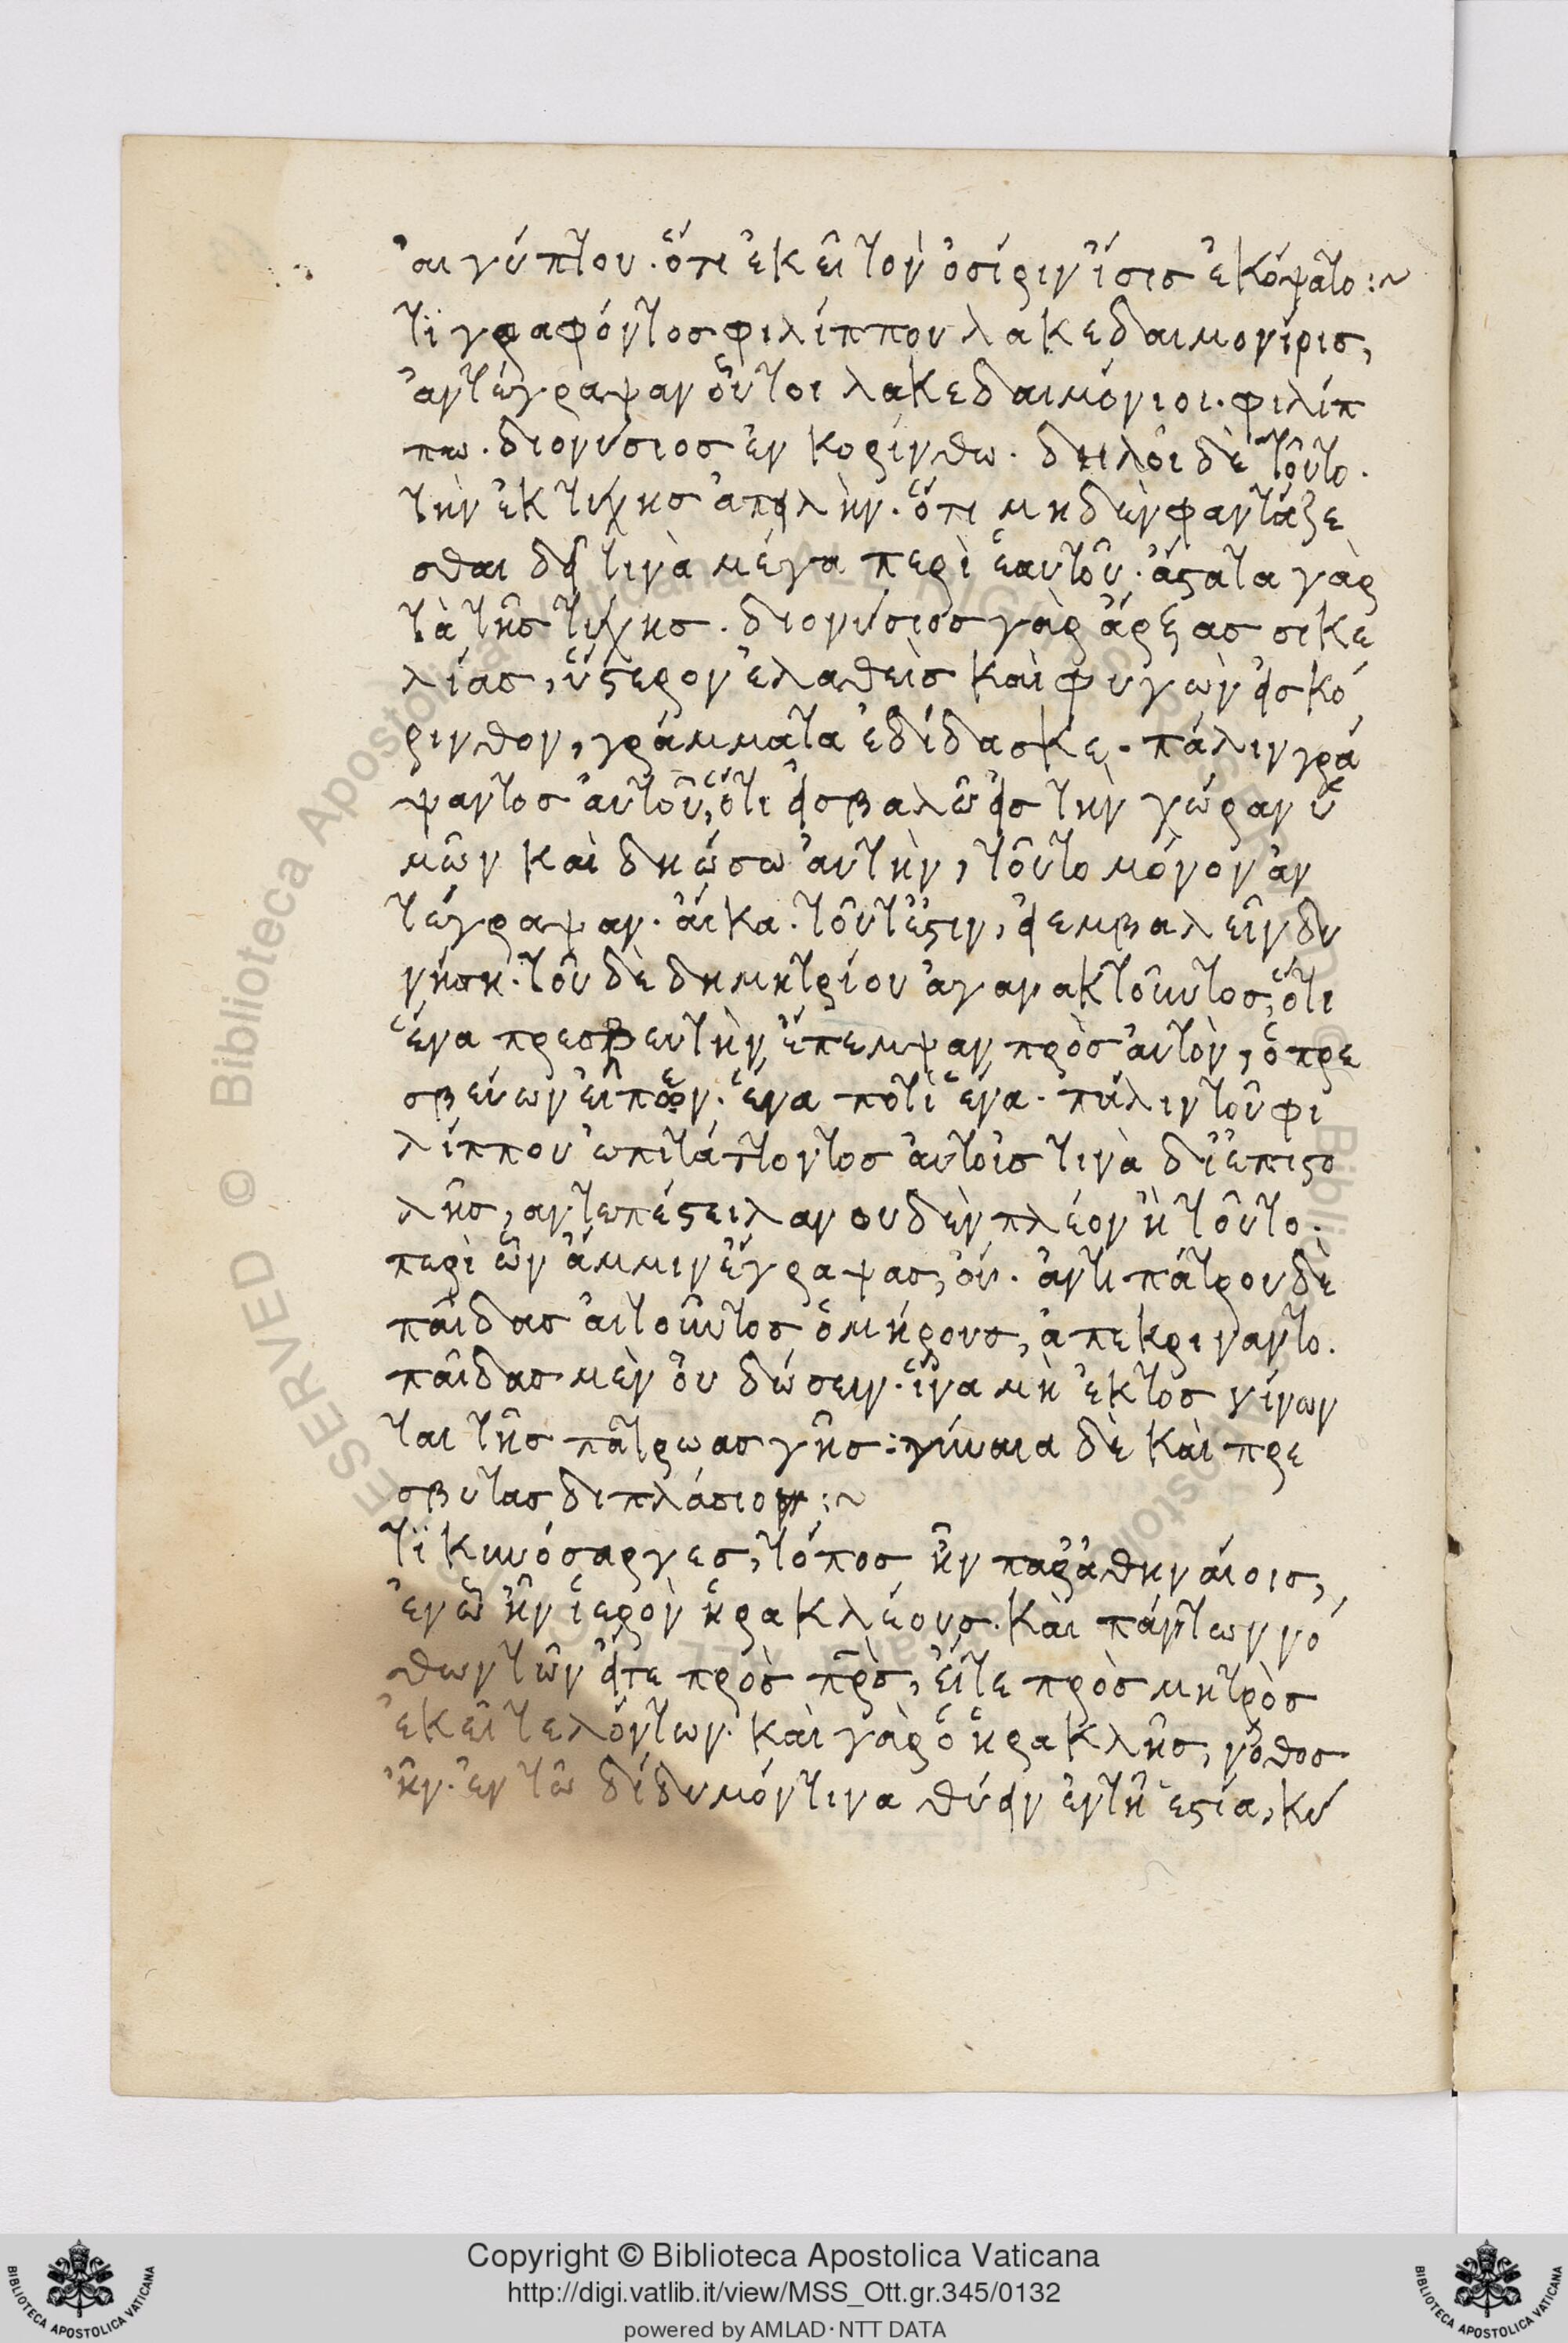 ἀιγύπτου. ὅτι ἐκεῖ τὸν ὀσίριν ἴσις ἐκόψατο:~
τϊ γραφόντος φιλίππου λακεδαιμονίοις,
ἀντέγραψαν οὗτοι λακεδαιμόνιοι. φιλίπ
πω. διονύσιος ἐν κορίνθω. δηλοῖ δὲ τοῦτο.
τὴν ἐκ τύχης ἀπειλὴν. ὅτι μηδὲν φαντάζε
σθαι δεῖ τινὰ μέγα περὶ ἑαυτοῦ. ἄστατα γὰρ
τὰ τῆς τύχης. διονύσιος γὰρ ἄρξας σικε
λίας, ὕστερον ἐλαθεὶς καὶ φυγὼν εἰς κό
ρινθον, γράμματα ἐδίδασκε. πάλιν γρά
ψαντος ἀυτοῦ, ὅτι εἰσβαλῶ εἰς τὴν χώραν ὑ
μῶν καὶ δηώσω ἀυτὴν, τοῦτο μόνον ἀν
τέγραψαν. ἄικα. τοῦτέστιν, εἰ ἐμβαλεῖν δυ
νήση. τοῦ δὲ δημητρίου ἀγανακτοῦντος, ὅτι
ἕνα πρεσβευτὴν ἔπεμψαν πρὸς ἀυτὸν, ὁ πρε
σβεύων εἶπεν. ἕνα ποτὶ ἕνα. πάλιν τοῦ φι
λίππου ἐπιτάττοντος ἀυτοῖς τινὰ δἰ ἐπιστο
λῆς, αντεπέστειλαν ουδὲν πλέον ἢ τοῦτο.
περὶ ὧν ἄμμιν ἔγραψας, ὀύ. ἀντιπάτρου δὲ
παῖδας ἀιτοῦντος ὁμήρους, ἀπεκριναντο.
παῖδας μὲν ὀυ δώσειν. ἵνα μὴ ἐκτὸς γίνων
ται τῆς πατρώας γῆς: γύναια δὲ καὶ πρε
σβυτας διπλάσιον:~
τϊ κυνόσαργες, τόπος ἦν παρ' ἀθηναίοις,
ἐν ὧ ἦν ἱερὸν ἡρακλέους. καὶ πάντων νό
θων τῶν εἴτε πρὸς πρς, ἔιτε πρὸς μητρὸς
ἐκεῖ τελόντων. καὶ γὰρ ὁ ἡρακλῆς, νόθος
ἦν. ἐν τῶ δίδυμόν τινα θύειν ἐν τῆ ἑστία, κύ
Copyright © Biblioteca Apostolica Vaticana
http://digi.vatlib.it/view/MSS_Ott.gr.345/0132
powered by AMLAD·NTT DATA